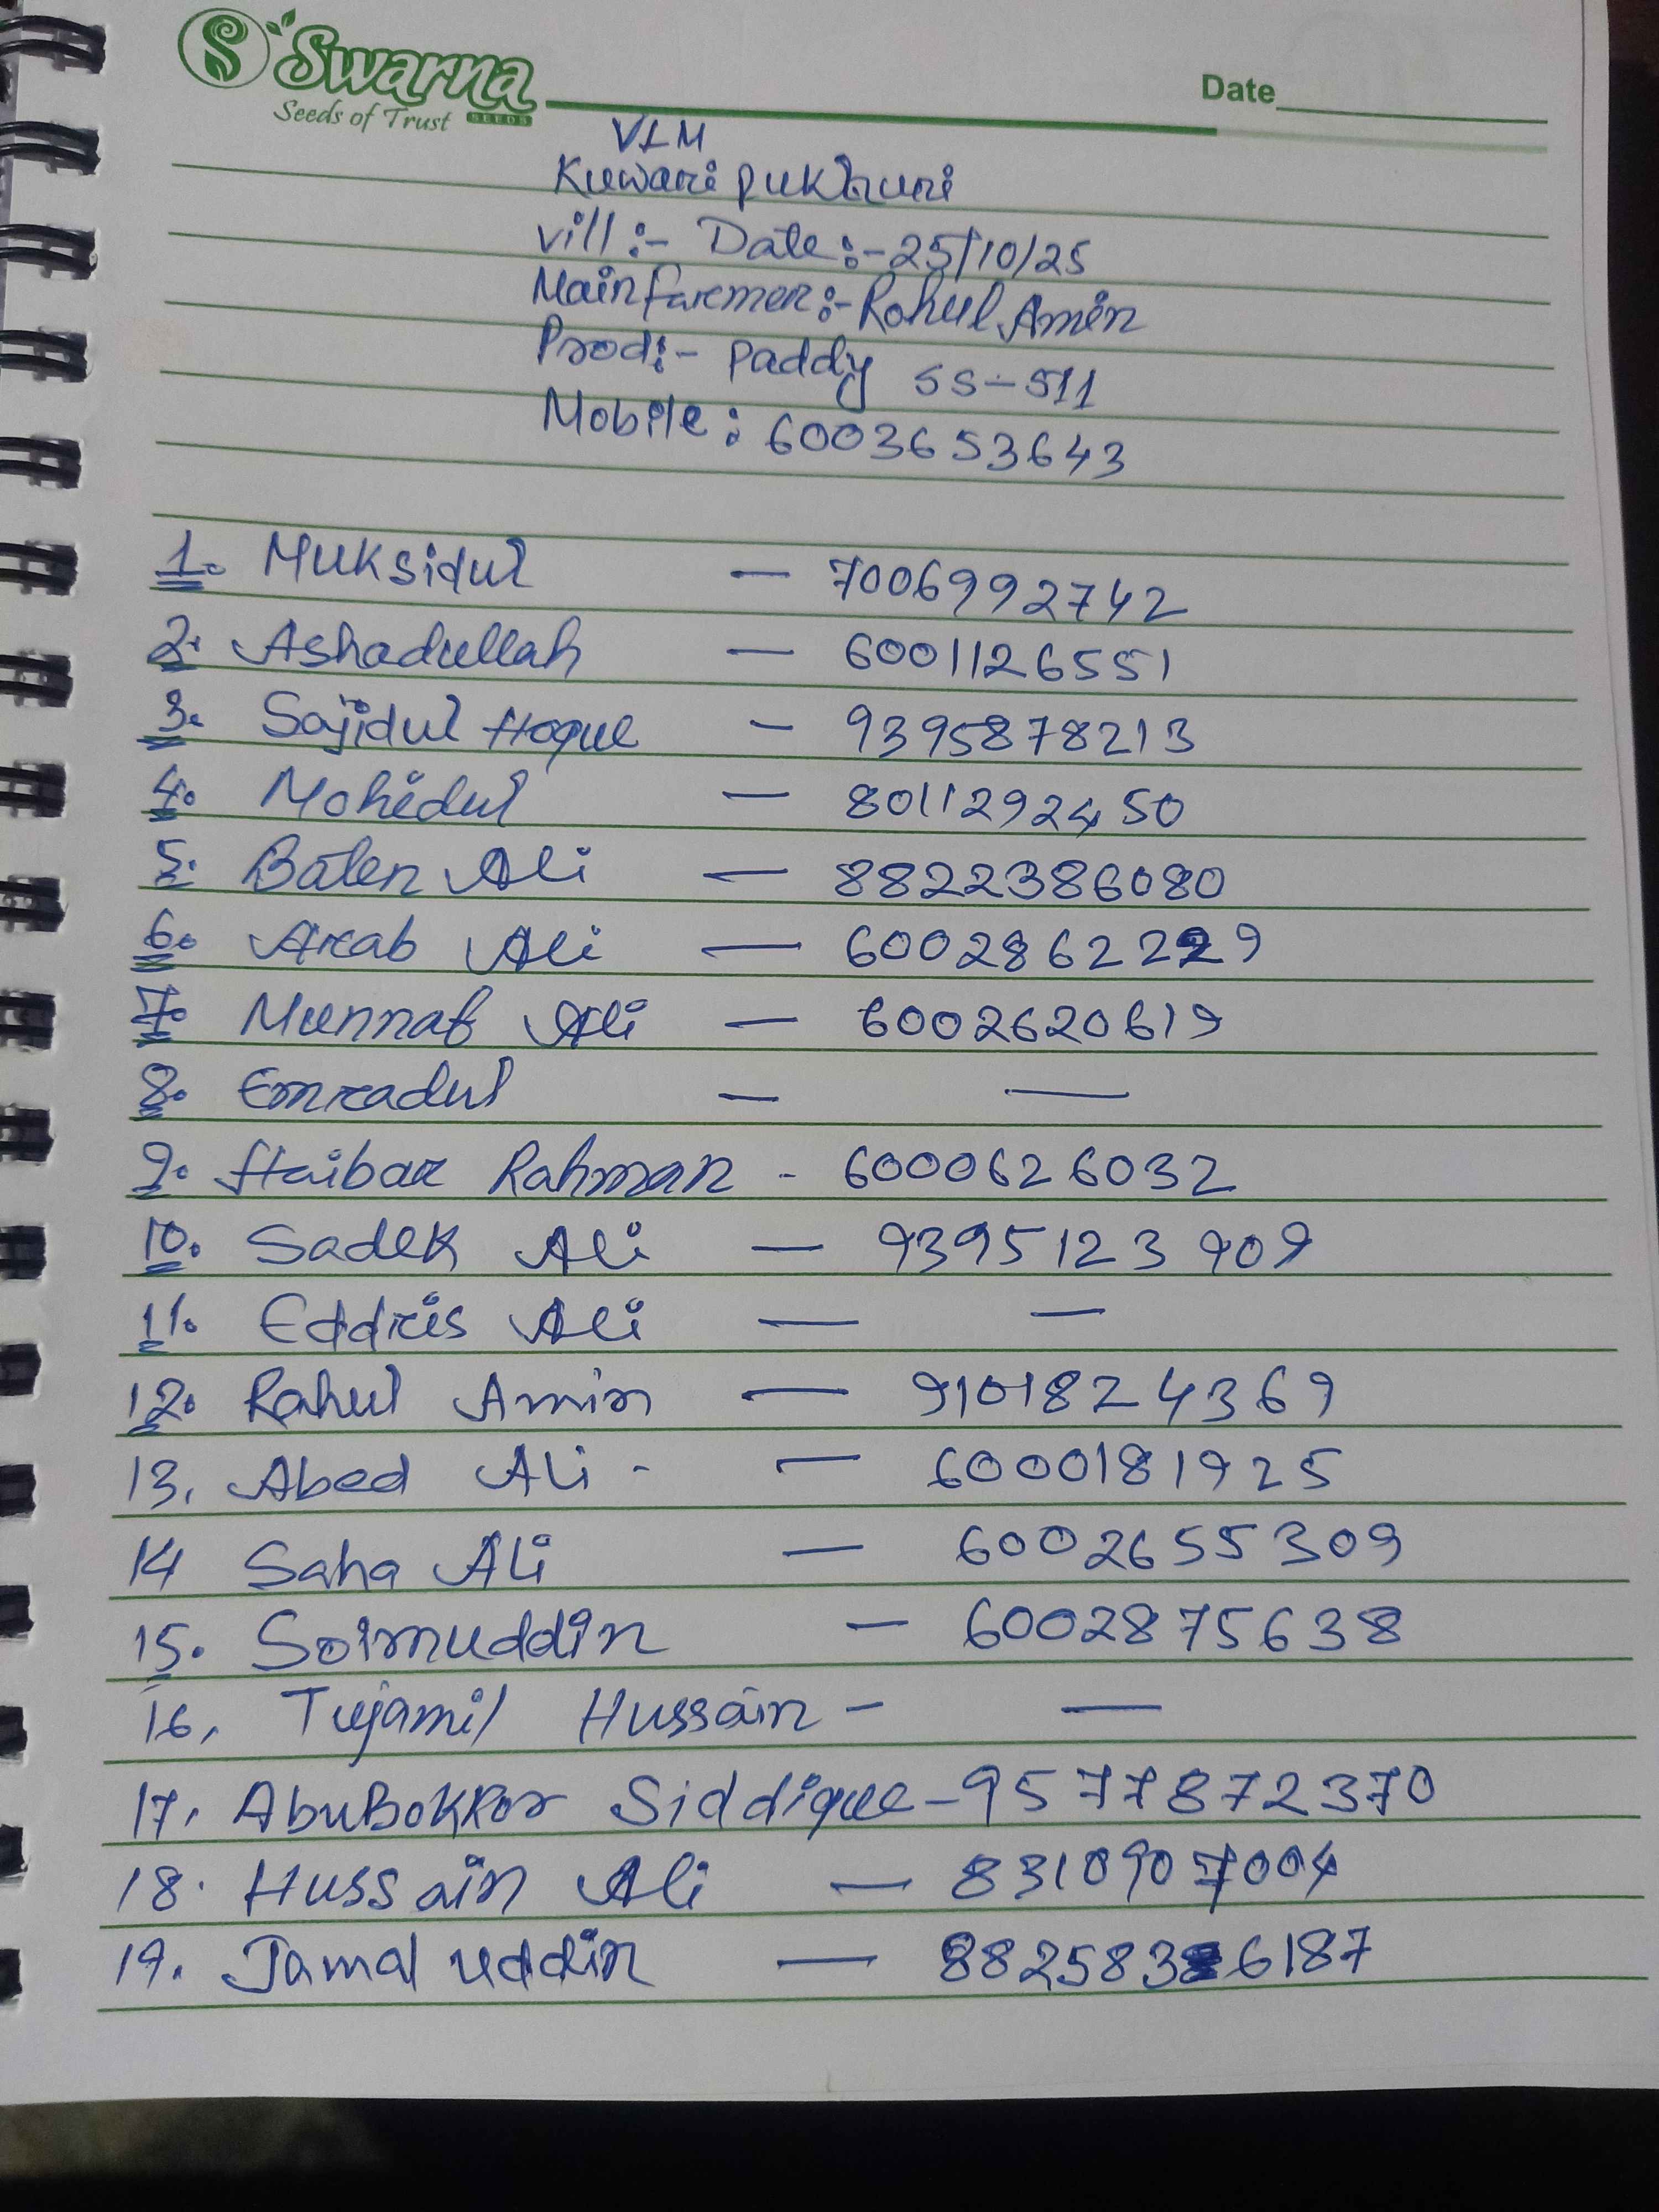 Swarna
Seeds of Trust SEEDS
Date
VLM
Kuwari pukhuri
Vill:- Date:-25/10/25
Main farmer:- Rohul Amin
Prod:- Paddy SS-511
Mobile: 6003653643
1. Muksidul — 7006992742
2. Ashadullah — 6001126551
3. Sajidul Hoque — 9395878213
4. Mohidul — 8011292450
5. Baten Ali — 8822386080
6. Arab Ali — 6002862229
7. Munnaf Ali — 6002620619
8. Emradul — —
9. Haibar Rahman - 6000626032
10. Sadek Ali — 9395123909
11. Eddris Ali — —
12. Rahul Amin — 9101824369
13. Abed Ali - — 6000181925
14 Saha Ali — 6002655309
15. Soimuddin — 6002875638
16. Tujamil Hussain - —
17. AbuBokkor Siddique - 9577872370
18. Hussain Ali — 8310907004
19. Jamal uddin —